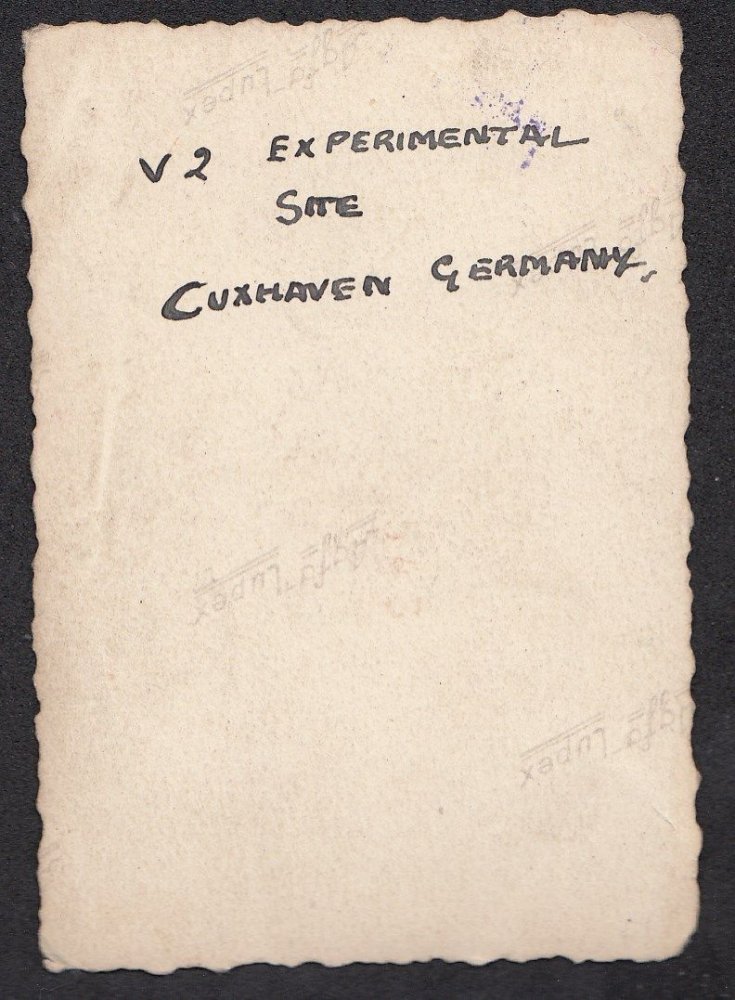 Agfa Lupex
V2 EXPERIMENTAL
SITE
CUXHAVEN GERMANY.
Agfa Lupex
Agfa Lupex